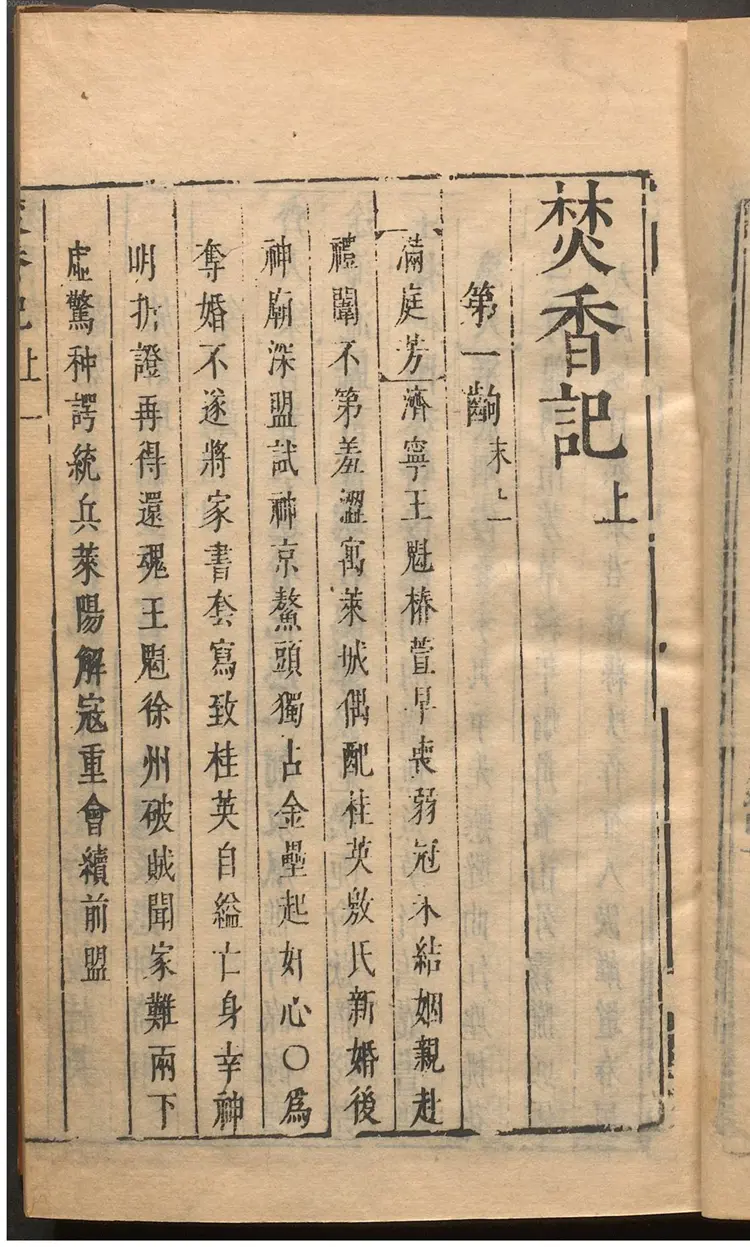 焚香記上
第一齣末上
滿庭芳濟寧王魁椿萱早喪弱冠未結姻親赴
禮闈不第羞澀寓萊城偶配桂英敫氏新婚後
神廟深盟試神京鰲頭獨占金壘起奸心〇為
奪婚不遂將家書套寫致桂英自縊亡身幸神
明折證再得還魂王魁徐州破賊聞家難兩下
虛驚种諤統兵萊陽解寇重會續前盟
香記 上 一